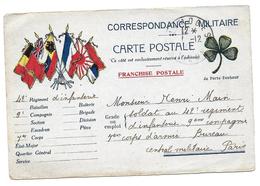 CORRESPONDANCE MILITAIRE
CARTE POSTALE
(Ce côté est exclusivement réservé à l'adresse)
FRANCHISE POSTALE
du Porte-Bonheur
48e Régiment d'infanterie
Bataillon Batterie
9e Compagnie Brigade
Section Division
Escadron Pièce
7e Corps
État-Major
Quartier Général
Service
Grade ou emploi
Monsieur Henri Marn
soldat au 48e regiment
d'infanterie 9eme compagnie
7eme corps d'armée Bureau
central militaire Paris